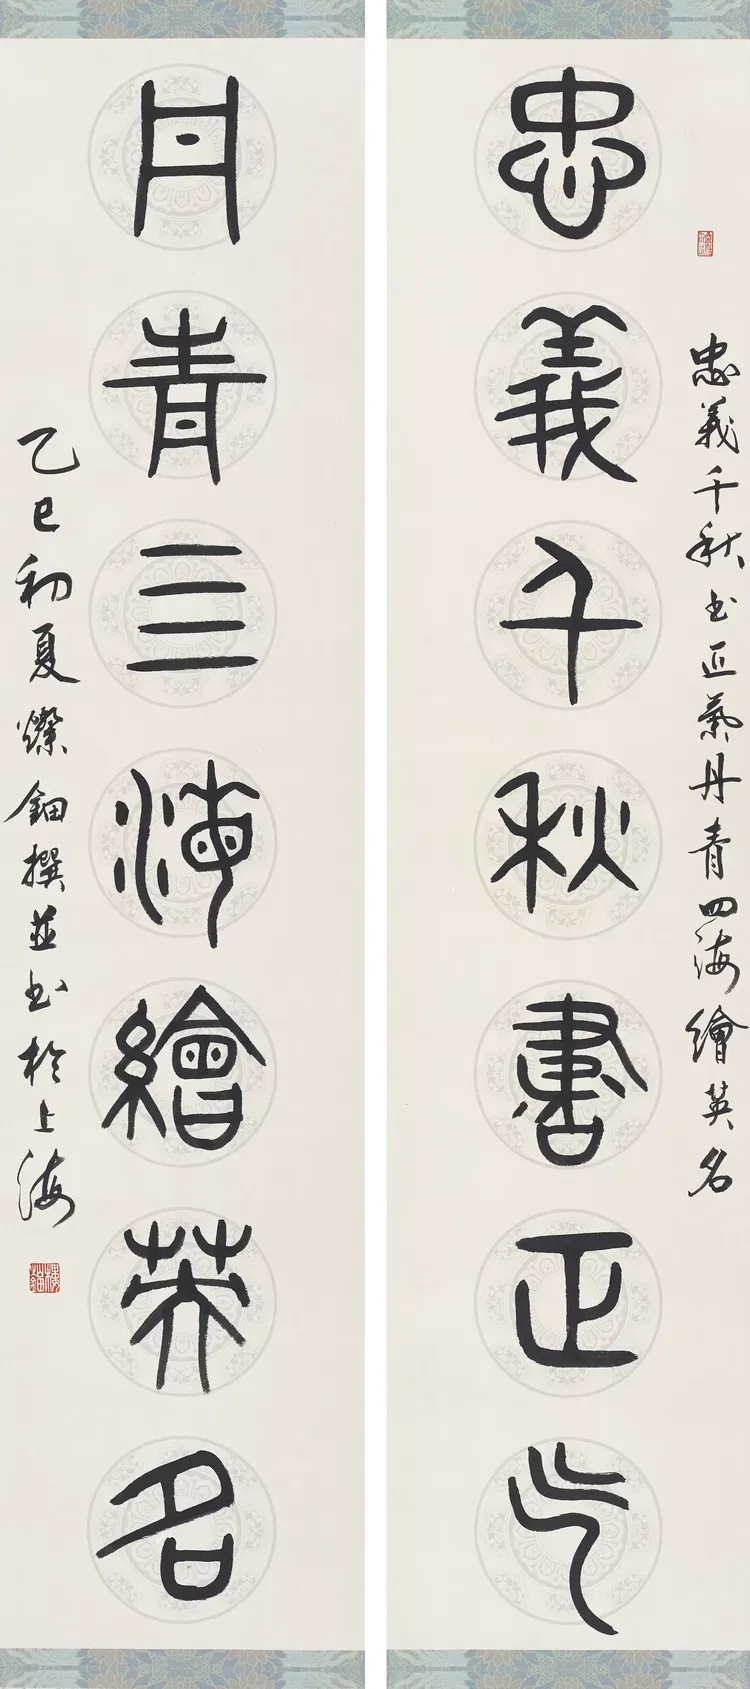 忠義千秋书正氣丹青四海繪英名
忠義千秋書正气
丹青亖海繪英名
乙巳初夏燦鈿撰並书於上海